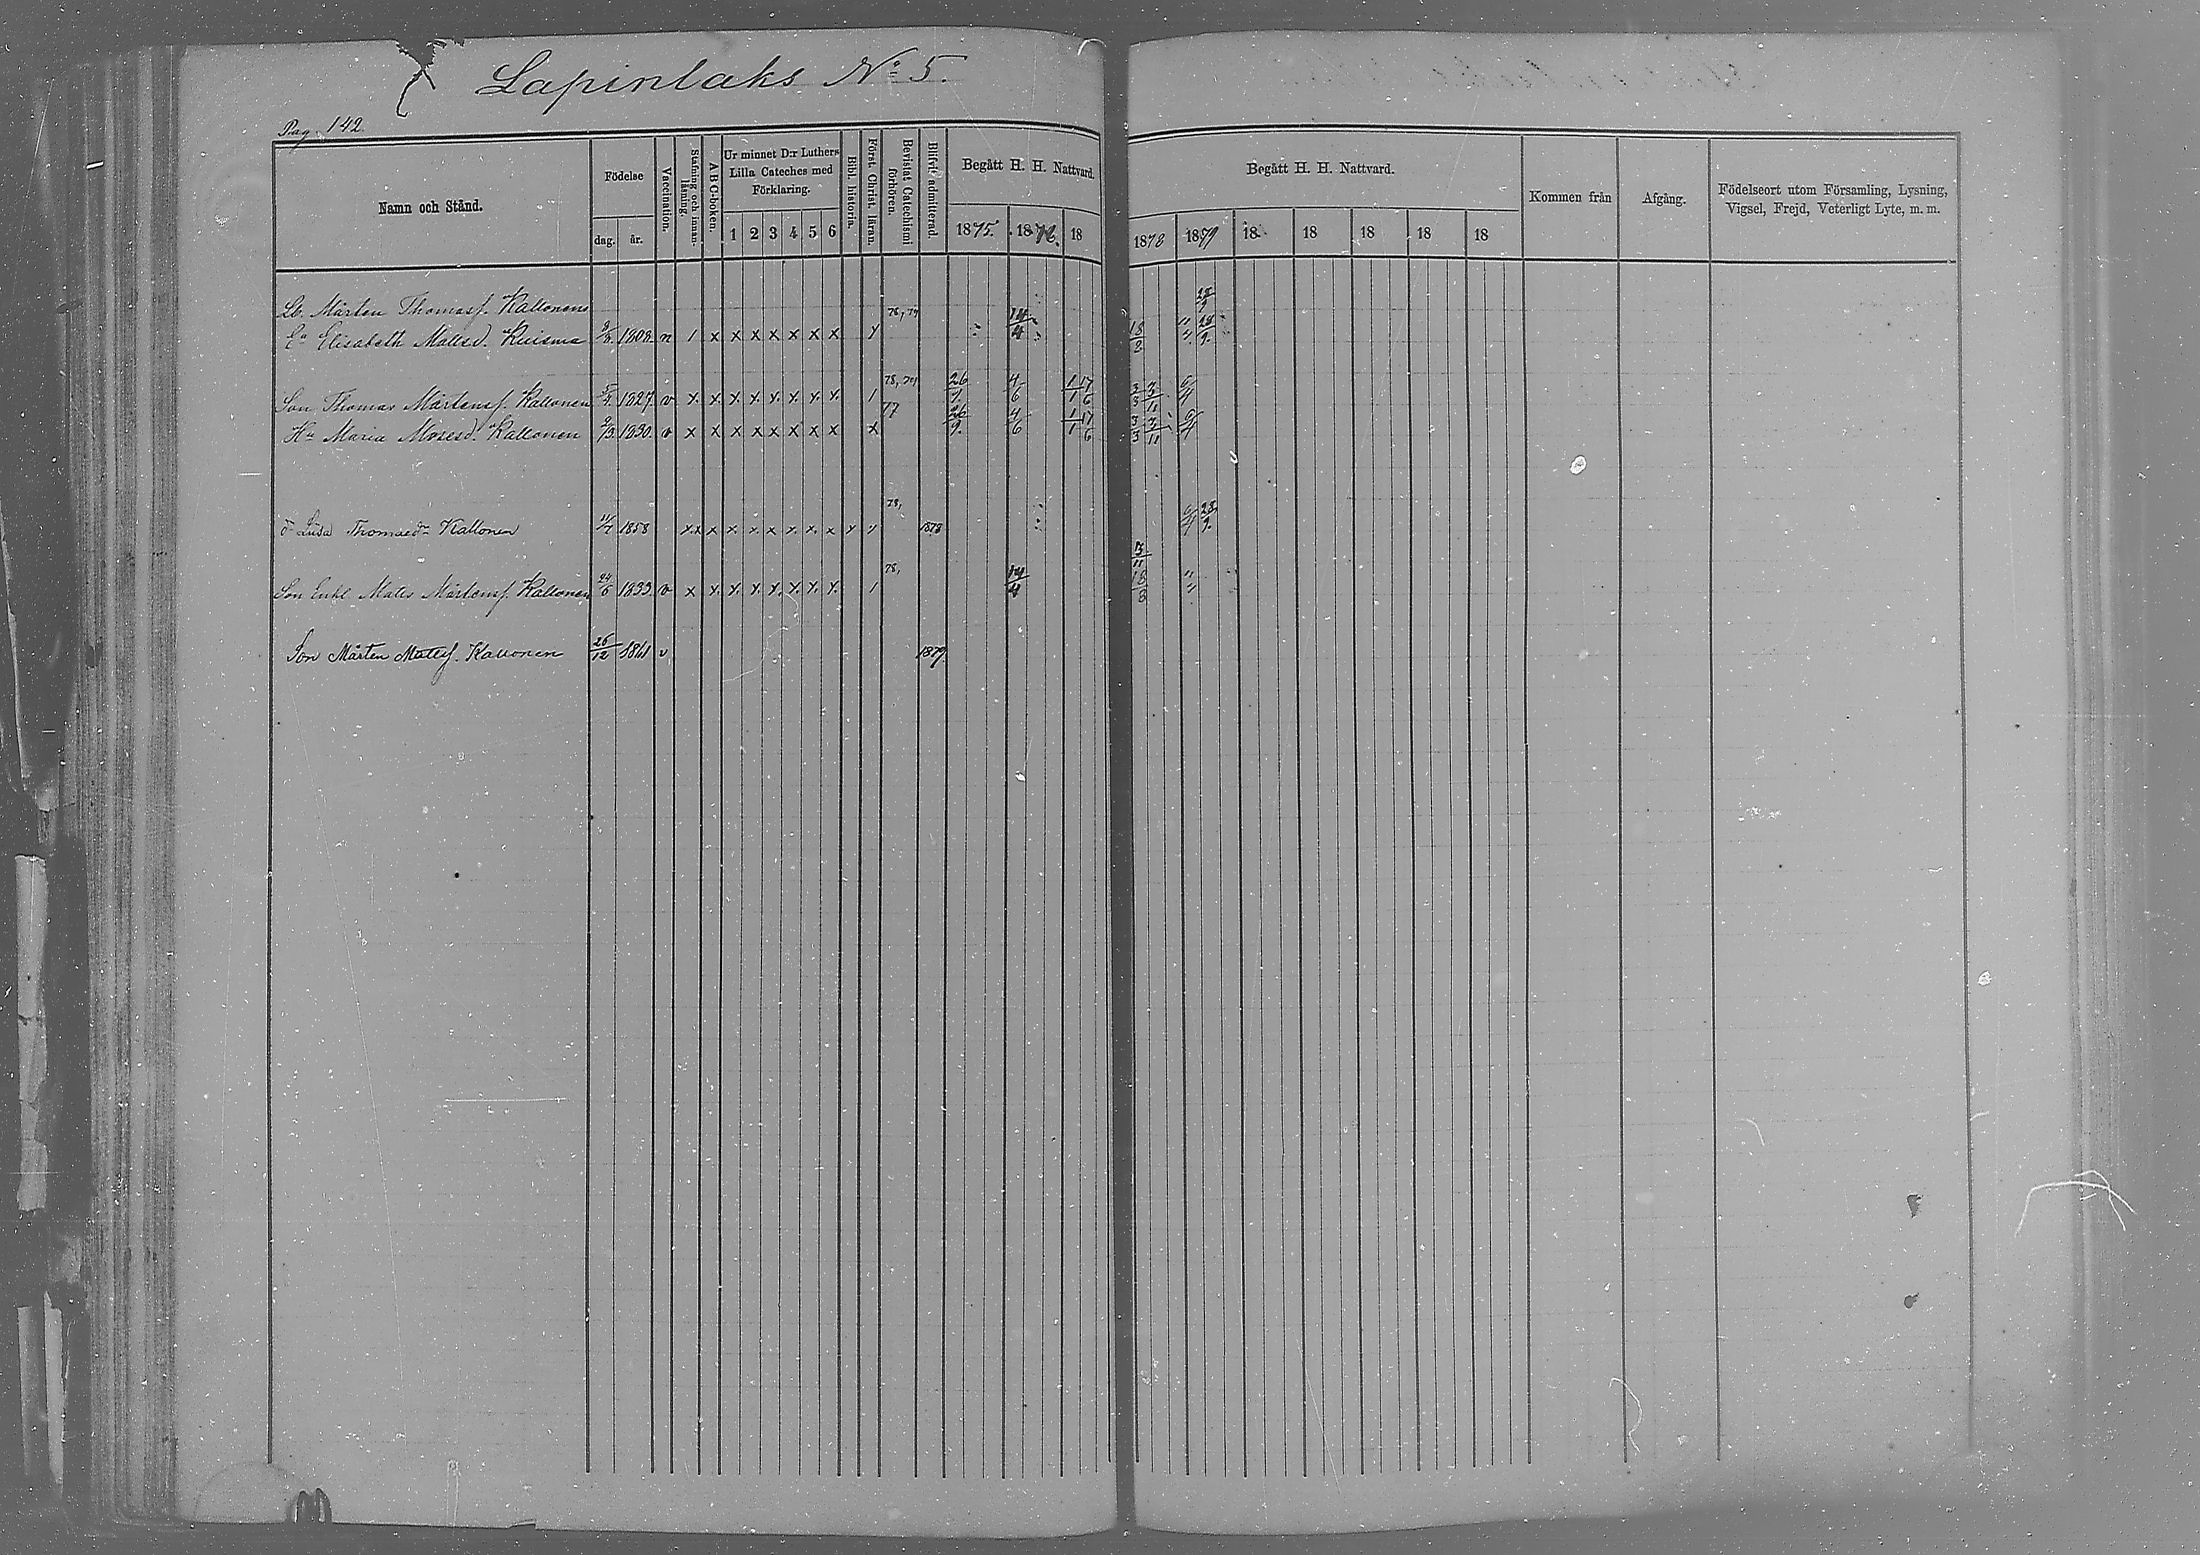 Lapinlaks No 5.
Pag. 142.
Namn och Stånd.
Födelse
dag. år.
Vaccination.
Stafning och innan-läsning.
A B C-boken.
Ur minnet D:r Luthers
Lilla Cateches med
Förklaring.
1 2 3 4 5 6
Bibl. historia.
Först. Christ. läran.
Bevistat Catechismi förhören.
Blifvit admitterad.
Begått H. H. Nattvard.
1875. 1876. 18
Begått H. H. Nattvard.
1878 1879 18 18 18 18 18
Kommen från
Afgång.
Födelseort utom Församling, Lysning,
Vigsel, Frejd, Veterligt Lyte, m. m.
Lb. Mårten Thomasf. Kallonens 28/9
Ea Elisabeth Mattsd. Kuisma 1808 n 1 x x x x x x x 78, 79 14/4 18/8 28/9.
Son Thomas Mårtensf. Kallonen 1827 v x x x x x x x x 1 78, 79 26/9. 4/6 1/1 17/6 3/3 3/11 6/4
Hu Maria Mosesd. Kallonen 9/3 1830 v x x x x x x x x x 77 26/9. 4/6 1/1 17/6 3/3 3/11 6/4
dr Lisa Thomaedr Kallonen 11/7 1858 x x x x x x x x x 78, 1878 6/4 28/9.
3/11
Son Enkl Matts Mårtensf. Kallonen 24/6 1833 v x x x x x x x x 1 78, 14/4 18/8
Son Mårten Mattsf. Kallonen 26/12 1861 v 1879.